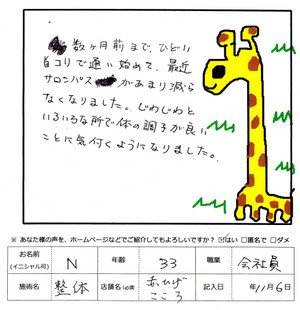 数ヶ月前まで、ひどい
首コリで通い始めて、最近
サロンパスがあまり減ら
なくなりました。じわじわと
いろいろな所で体の調子が良い
ことに気付くようになりました。
※ あなた様の声を、ホームページなどでご紹介してもよろしいですか? ☑はい □匿名で □ダメ
お名前
(イニシャル可) N 年齢 33 職業 会社員
施術名 整体 店舗名(必須) 赤ひげ
こころ 記入日 年11月6日